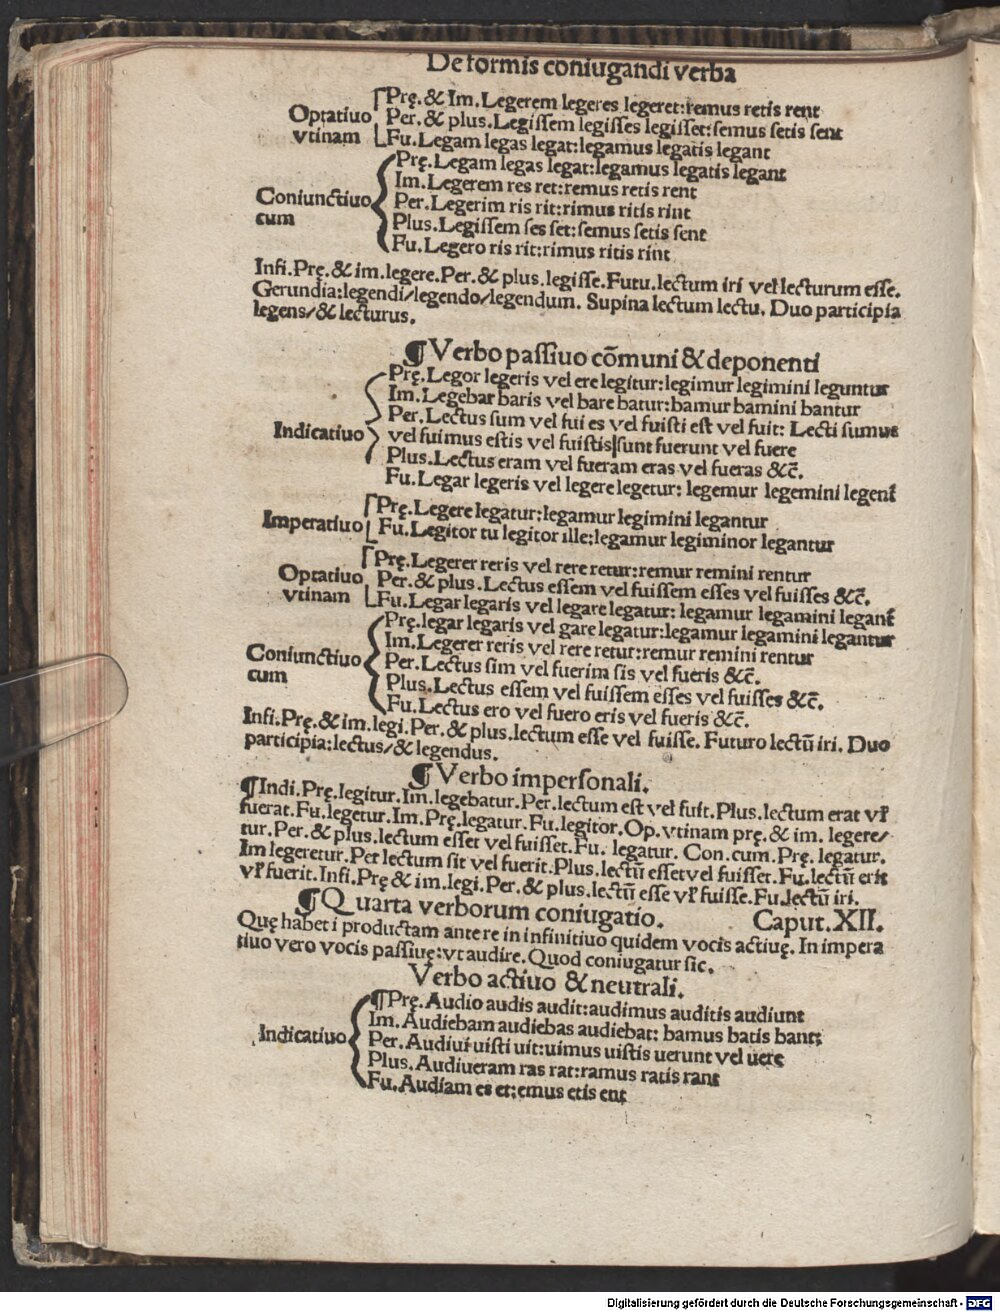 De formis coniugandi verba
Optatiuo vtinam
Prę. & Im. Legerem legeres legeret:remus retis rent
Per. & plus. Legissem legisses legisset:semus setis sent
Fu. Legam legas legat:legamus legatis legant
Coniunctiuo cum
Pre. Legam legas legat:legamus legatis legant
Im. Legerem res ret:remus retis rent
Per. Legerim ris rit:rimus ritis rint
Plus. Legissem ses set:semus setis sent
Fu. Legero ris rit:rimus ritis rint
Infi. Prę. & im. legere. Per. & plus. legisse. Futu. lectum iri vel lecturum esse.
Gerundia:legendi/legendo/legendum. Supina lectum lectu. Duo participia
legens/& lecturus.
¶ Verbo passiuo cõmuni & deponenti
Indicatiuo
Prę. Legor legeris vel ere legitur:legimur legimini leguntur
Im. Legebar baris vel bare batur:bamur bamini bantur
Per. Lectus sum vel fui es vel fuisti est vel fuit: Lecti sumus
vel fuimus estis vel fuistis|sunt fuerunt vel fuere
Plus. Lectus eram vel fueram eras vel fueras &c̃.
Fu. Legar legeris vel legere legetur: legemur legemini legent̃
Imperatiuo
Prę. Legere legatur:legamur legimini legantur
Fu. Legitor tu legitor ille:legamur legiminor legantur
Optatiuo vtinam
Prę. Legerer reris vel rere retur:remur remini rentur
Per. & plus. Lectus essem vel fuissem esses vel fuisses &c̃.
Fu. Legar legaris vel legare legatur: legamur legamini legant̃
Coniunctiuo cum
Prę. legar legaris vel gare legatur:legamur legamini legantur
Im. Legerer reris vel rere retur:remur remini rentur
Per. Lectus sim vel fuerim sis vel fueris &c̃.
Plus. Lectus essem vel fuissem esses vel fuisses &c̃.
Fu. Lectus ero vel fuero eris vel fueris &c̃.
Infi. Prę. & im. legi. Per. & plus. lectum esse vel fuisse. Futuro lectũ iri. Duo
participia:lectus/& legendus.
¶ Verbo impersonali.
¶Indi. Prę. legitur. Im. legebatur. Per. lectum est vel fuit. Plus. lectum erat vł
fuerat. Fu. legetur. Im. Prę. legatur. Fu. legitor. Op. vtinam prę. & im. legere/
tur. Per. & plus. lectum esset vel fuisset. Fu. legatur. Con. cum. Prę. legatur.
Im legeretur. Per lectum sit vel fuerit. Plus. lectũ esset vel fuisset. Fu. lectũ erit
vł fuerit. Infi. Prę & im. legi. Per. & plus. lectũ esse vł fuisse. Fu. lectũ iri.
¶Quarta verborum coniugatio. Caput. XII.
Quę habet i productam ante re in infinitiuo quidem vocis actiuę. In impera
tiuo vero vocis passiuę:vt audire. Quod coniugatur sic.
Verbo actiuo & neutrali.
Indicatiuo
¶Prę. Audio audis audit:audimus auditis audiunt
Im. Audiebam audiebas audiebat: bamus batis bant:
Per. Audiui uisti uit:uimus uistis uerunt vel uere
Plus. Audiueram ras rat:ramus ratis rant
Fu. Audiam es et:emus etis ent
Digitalisierung gefördert durch die Deutsche Forschungsgemeinschaft - DFG